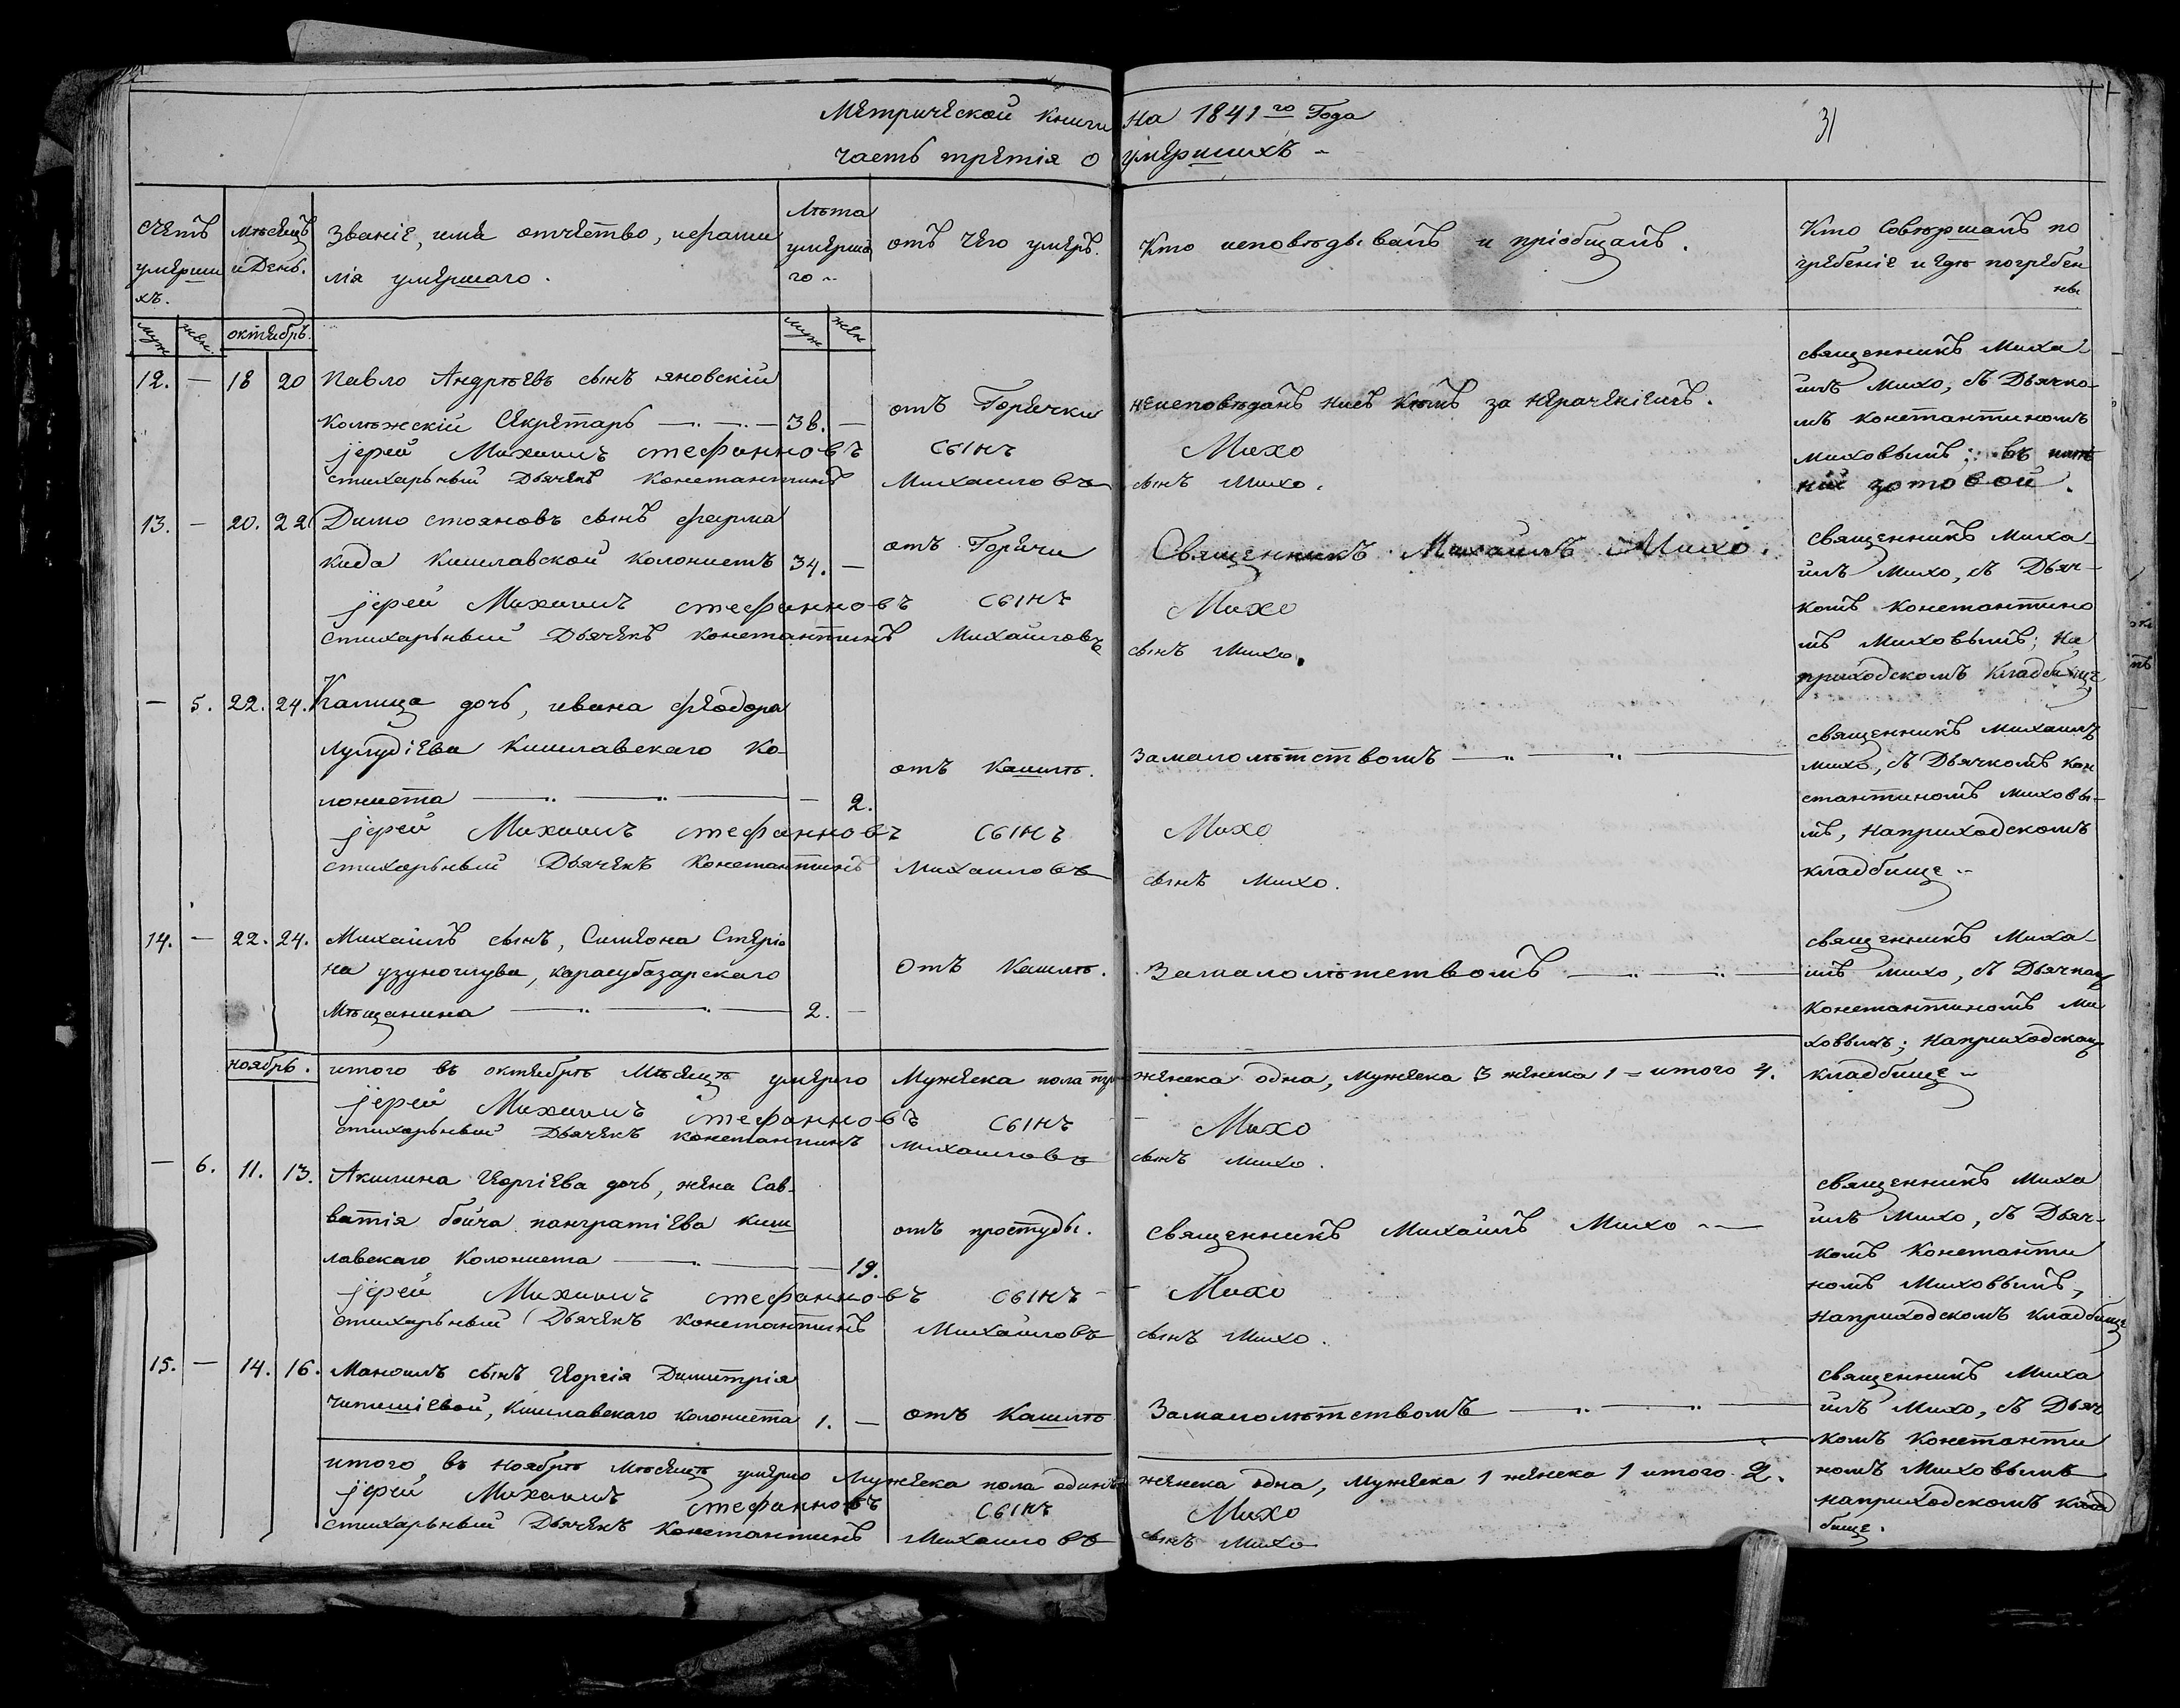 Метрической книги на 1841го Года
31
часть третія о умершихъ
счетъ умершихъ.
мѣсяцъ и День.
Званіе, имя отчество, и фамилія умершаго.
Лѣта умершаго
отъ чего умеръ.
Кто исповѣдывалъ и пріобщалъ.
Кто Совершалъ погребеніе и гдѣ погребены
муж
жен.
октябрь.
муж
жен
12. — 18 20 Павло Андрѣевъ сынъ яновскій
колѣжскій Секретарь — 38. —
отъ Горячки
неисповѣданъ
за нерачениемъ.
священникъ Миха
илъ Михо, съ Дьячко
мъ константиномъ
Миховымъ; въ
зотовой.
іерей Михаилъ стефановъ сынъ Михо
стихарьный Дьячекъ константинъ Михаиловъ сынъ Михо.
13. — 20. 22 Димо стояновъ сынъ
кида кишлавской колонистъ 34. —
отъ Горячи
Священникъ Михаилъ Михо.
священникъ Миха
илъ Михо, съ Дьяч
комъ константино
мъ Миховымъ; на
приходскомъ кладбище
іерей Михаилъ стефановъ сынъ Михо
стихарьный Дьячекъ константинъ Михаиловъ сынъ Михо.
— 5. 22. 24. Калица дочь, ивана феодора
кишлавскаго ко
лониста — 2.
отъ Кашлѣ.
замалолѣтствомъ
священникъ Михаилъ
Михо, съ Дьячкомъ кон
стантиномъ Миховы
мъ, наприходскомъ
кладбище
іерей Михаилъ стефановъ сынъ Михо
стихарьный Дьячекъ константинъ Михаиловъ сынъ Михо.
14. — 22. 24. Михаилъ сынъ, Симеона Стеріо
на узуноглува, карасубазарскаго
Мѣщанина 2. —
Отъ Кашлѣ.
Замалолѣтствомъ
священникъ Миха
илъ Михо, съ Дьячком
константиномъ Ми
ховымъ; наприходском
кладбище
ноябрь.
итого въ октябрѣ Мѣсяцѣ умерло Мужеска пола три женска одна, мужеска 3 женска 1 = итого 4.
іерей Михаилъ стефановъ сынъ Михо
стихарьный Дьячекъ константинъ Михаиловъ сынъ Михо.
— 6. 11. 13. Акилина Георгіева дочь, жена Сав
ватія бойча панчратіева киш
лавскаго Колониста — 19.
отъ простуды.
священникъ Михаилъ Михо
священникъ Миха
илъ Михо, съ Дьяч
комъ Константи
номъ Миховымъ,
наприходскомъ кладбище
іерей Михаилъ стефановъ сынъ Михо
стихарьный Дьячекъ константинъ Михайловъ сынъ Михо.
15. — 14. 16. Маноилъ сынъ Георгія Димитрія
Кишлавскаго колониста 1. —
отъ Кашлѣ
Замалолѣтствомъ
священникъ Миха
илъ Михо, съ Дьяч
комъ Константи
номъ Миховымъ
наприходскомъ клад
бище.
итого въ ноябрѣ мѣсяцѣ умерло Мужеска пола одинъ женска одна, мужеска 1 женска 1 итого 2.
іерей Михаилъ стефановъ сынъ Михо
стихарьный Дьячекъ Константинъ Михаиловъ сынъ Михо